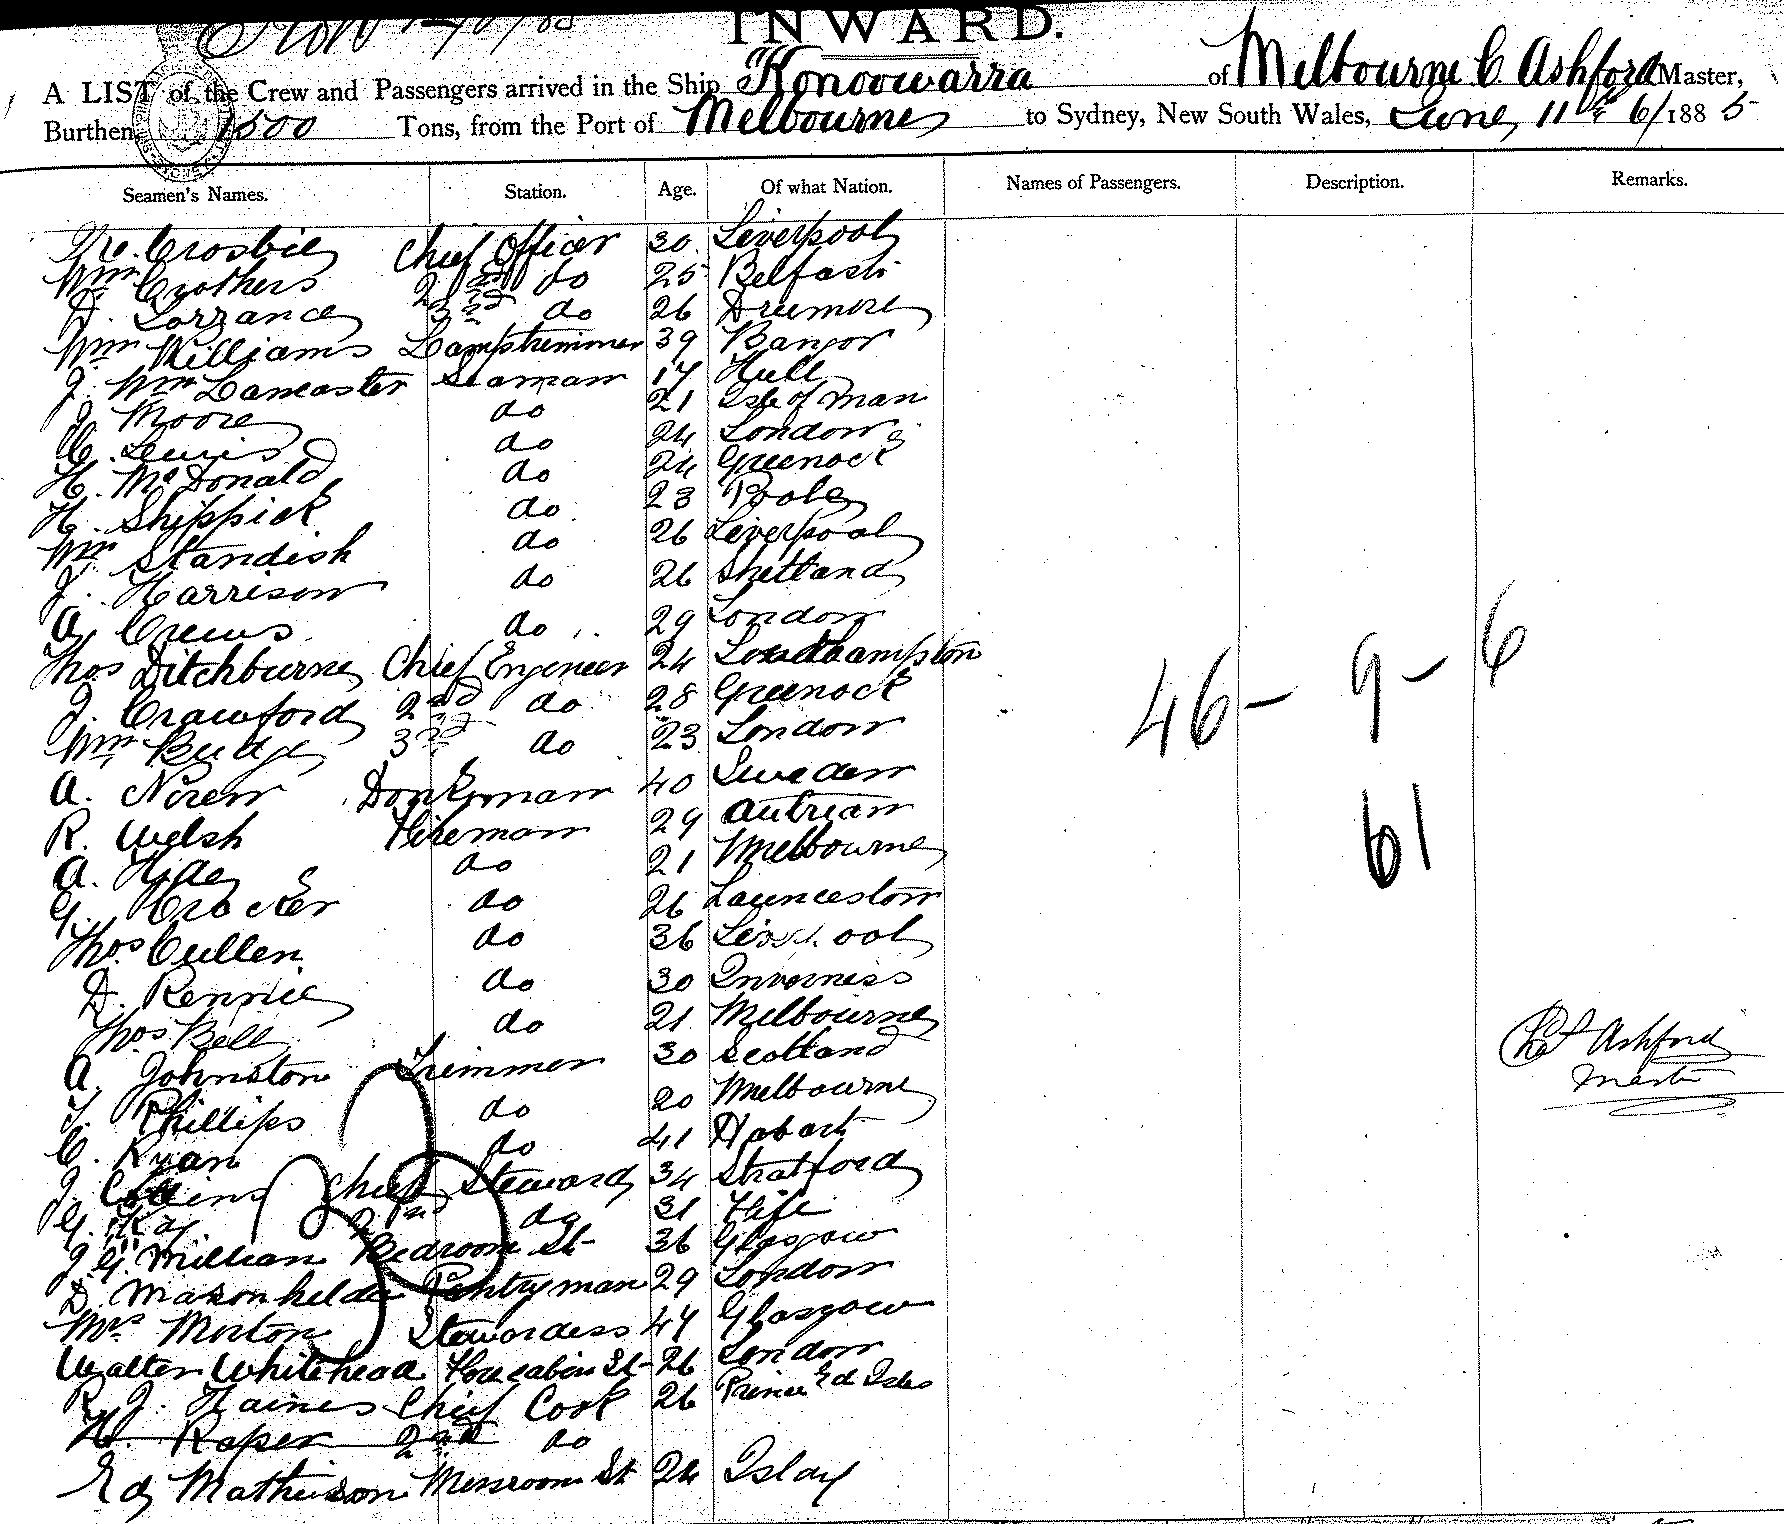 INWARD.
A LIST of the Crew and Passengers arrived in the Ship "Konoowarra of Melbourne C. Ashford Master,
Burthen 1500 Tons, from the Port of Melbourne to Sydney, New South Wales, June 11th 6/1885
Seamen's Names. Station. Age. Of what Nation. Names of Passengers. Description. Remarks.
Crosbie Chief Officer 30 Liverpool
Wm Crothers 2nd do 25 Belfast
D. Lorrance 3rd do 26 Dreemore
Wm Williams Lamptrimmer 39 Bangor
J. Wm Lancaster Seaman 17 Hull
J. Moore do 21 Isle of Man
C. Lewis do 24 London
H. McDonald do 24 Greenock
H. Shippick do 23 Poole
Wm Standish do 26 Liverpool
J. Harrison do 26 Shetland
A. Crews do 29 London
Thos Ditchburne Chief Engineer 24 Southampton
J. Crawford 2nd do 28 Greenock
Wm Budge 3rd do 23 London
A. Noren Donkeyman 40 Sweden
R. Welsh Fireman 29 Autrian
A. Hyde do 21 Melbourne
G. Crocker do 26 Launceston
Thos Cullen do 36 Liverpool
D. Rennie do 30 Inverness
Thos Bell do 21 Melbourne
A. Johnston Trimmer 30 Scotland
T. Phillips do 20 Melbourne
C. Ryan do 41 Hobart
J. Collins Chief Steward 34 Stratford
G. Kay 2nd do 31 Fife
J. G. Millian Bedroom St 36 Glasgow
D. Pantryman 29 London
Mrs Morton Stewardess 47 Glasgow
Walter Whitehead Forecabin St 26 London
R. J. Haines Chief Cook 26 Prince Ed Isles
H. Raper 2nd do
Ed Mathieson Messroom St 24 Islay
46 - 9 - 6
61
Chas Ashford
Master